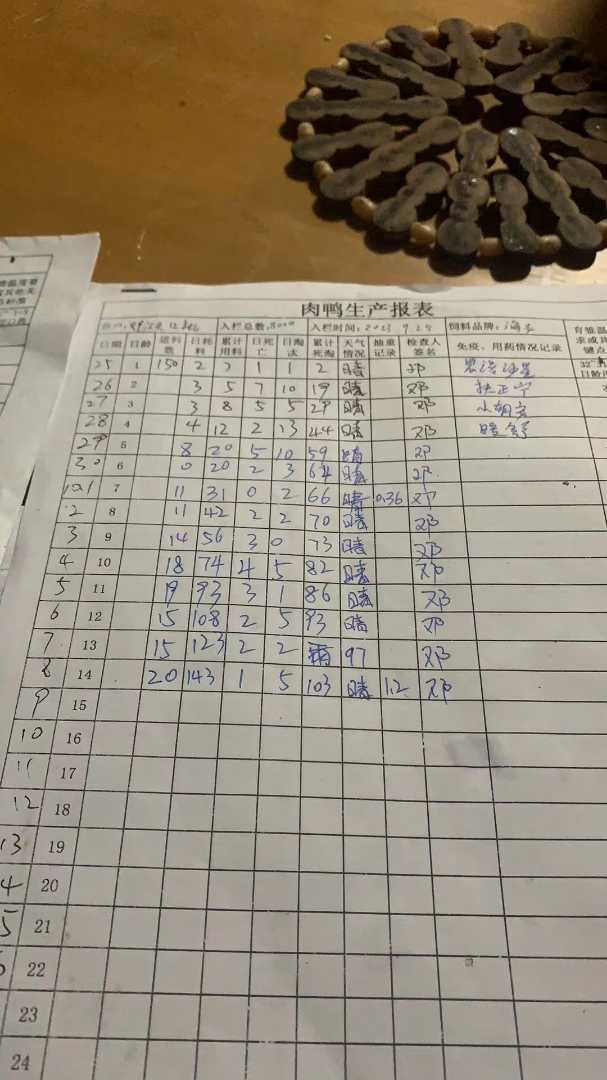 肉鸭生产报表
入栏总数:8000 入栏时间:2023 9.25 饲料品牌:
日期 日龄 进料数 日耗料 累计用料 日死亡 日淘汰 累计死淘 天气情况 抽重记录 检查人签名 免疫、用药情况记录
25 1 150 2 2 1 1 2 晴 邓
26 2 3 5 7 10 19 晴 邓
27 3 3 8 5 5 29 晴 邓
28 4 4 12 2 13 44 晴 邓
29 5 8 20 5 10 59 晴 邓
30 6 0 20 2 3 64 晴 邓
10.1 7 11 31 0 2 66 晴 0.36 邓
2 8 11 42 2 2 70 晴 邓
3 9 14 56 3 0 73 晴 邓
4 10 18 74 4 5 82 晴 邓
5 11 19 93 3 1 86 晴 邓
6 12 15 108 2 5 93 晴 邓
7 13 15 123 2 2 97 邓
8 14 20 143 1 5 103 晴 1.2 邓
9 15
10 16
11 17
12 18
13 19
4 20
5 21
22
23
24